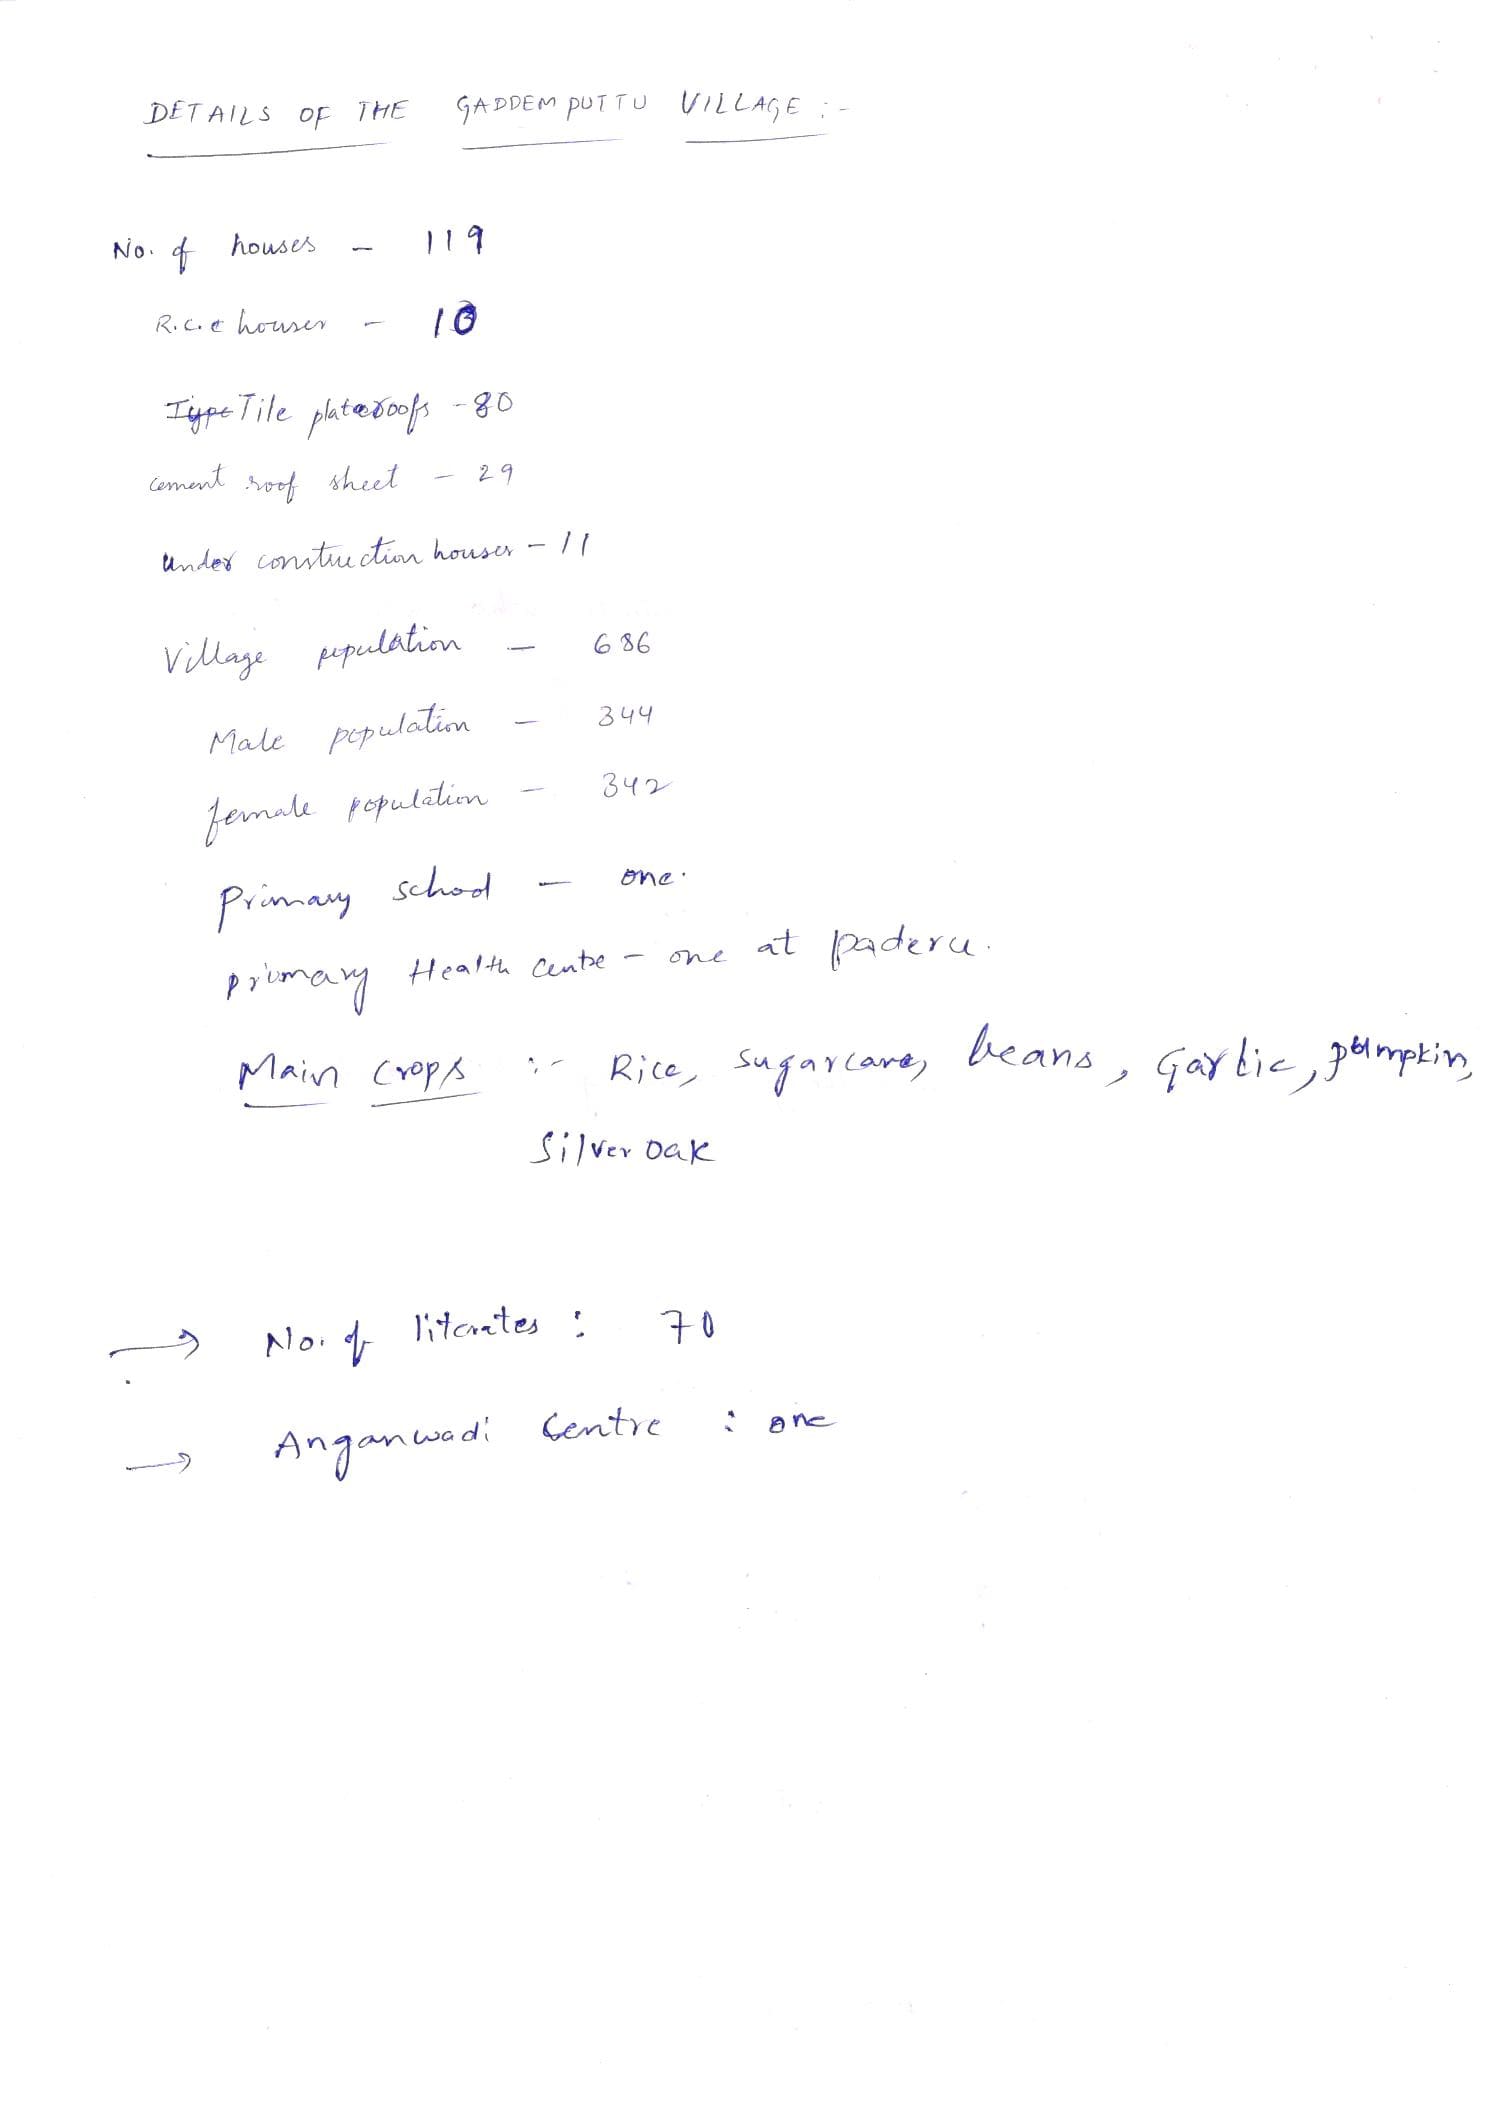 DETAILS OF THE GADDEMPUTTU VILLAGE :-
No. of houses - 119
R.C.C houses - 10
Tile plateroofs - 80
Cement roof sheet - 29
Under construction houses - 11
Village population - 686
Male population - 344
female population - 342
Primary school - one.
primary Health Centre - one at paderu.
Main Crops :- Rice, Sugarcane, beans, Garlic, pumpkin,
Silver oak
→ No. of literates : 70
→ Anganwadi Centre : one